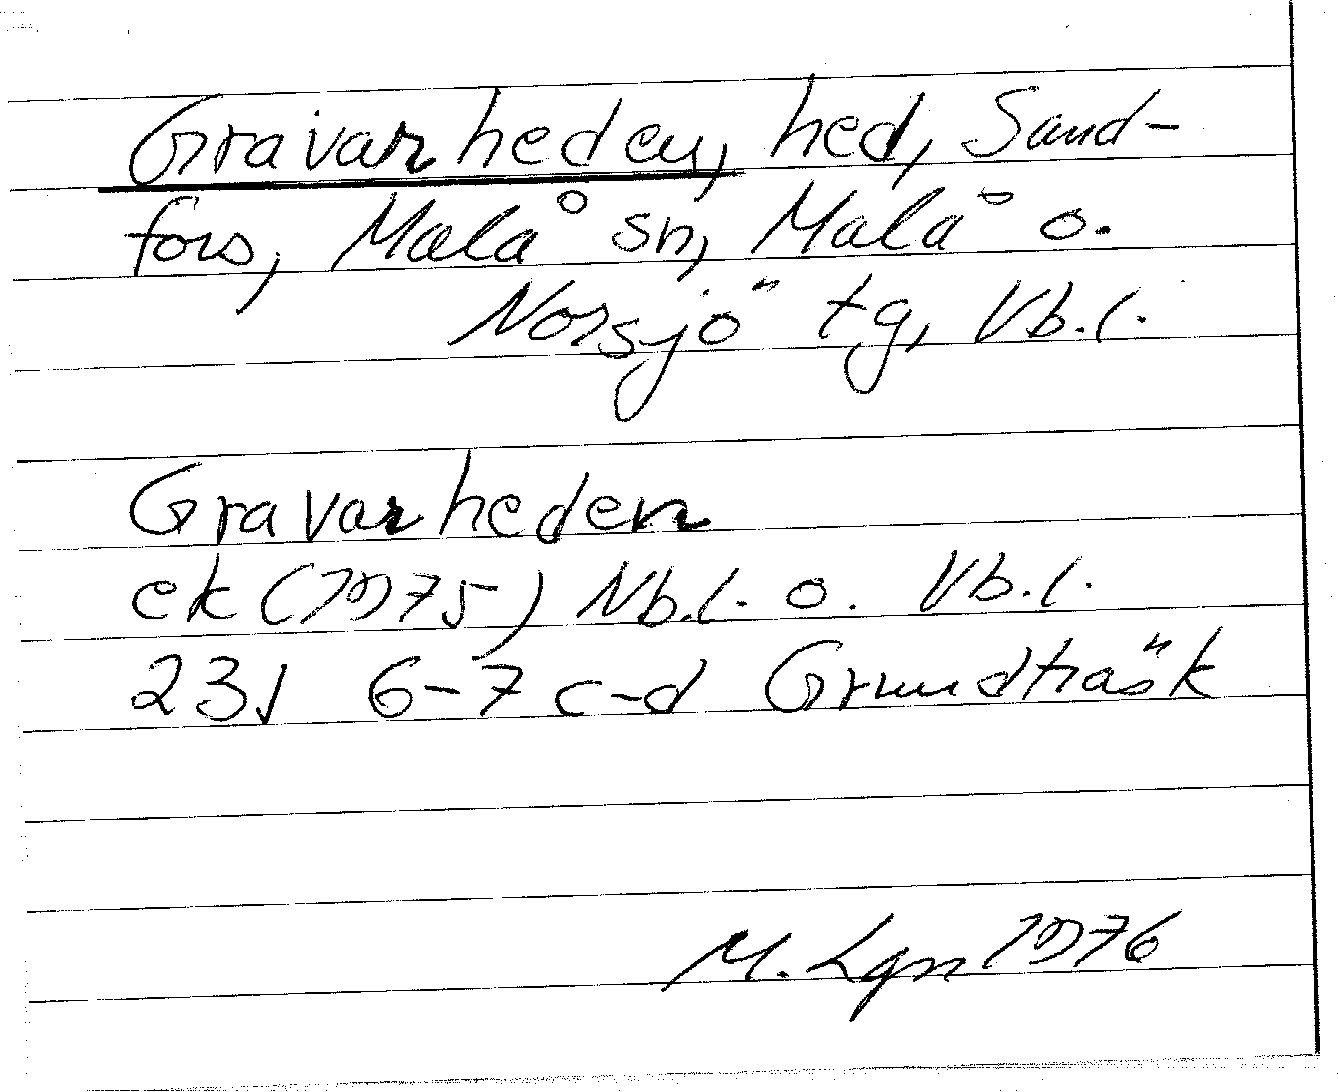 Gravarheden, hed, Sand-
fors, Malå sn, Malå o.
Norsjö tg, Vb.l.
Gravarheden
ek (1975) Nb.l. o. Vb.l.
23J 6-7 c-d Grundträsk
M. Lgn 1976